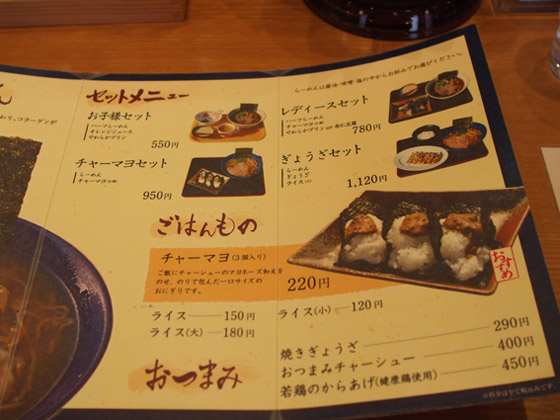 セットメニュー
らーめんは醤油・味噌・塩の中からお好みでお選びください。
お子様セット
ハーフらーめん
オレンジジュース
やわらかプリン
550円
チャーマヨセット
らーめん
チャーマヨ
950円
レディースセット
ハーフらーめん
チャーマヨ
やわらかプリン
780円
ぎょうざセット
らーめん
ぎょうざ
ライス(小)
1,120円
ごはんもの
チャーマヨ(3個入り)
ご飯にチャーシューのマヨネーズ和えを
のせ、のりで包んだ一口サイズの
おにぎりです。
220円
おすすめ
ライス 150円
ライス(小) 120円
ライス(大) 180円
おつまみ
焼きぎょうざ 290円
おつまみチャーシュー 400円
若鶏のからあげ(健康鶏使用) 450円
※料金はすべて税込みです。